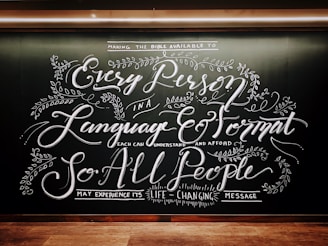 MAKING THE BIBLE AVAILABLE TO
Every Person
IN A
Language & Format
EACH CAN UNDERSTAND AND AFFORD
So All People
MAY EXPERIENCE ITS LIFE-CHANGING MESSAGE